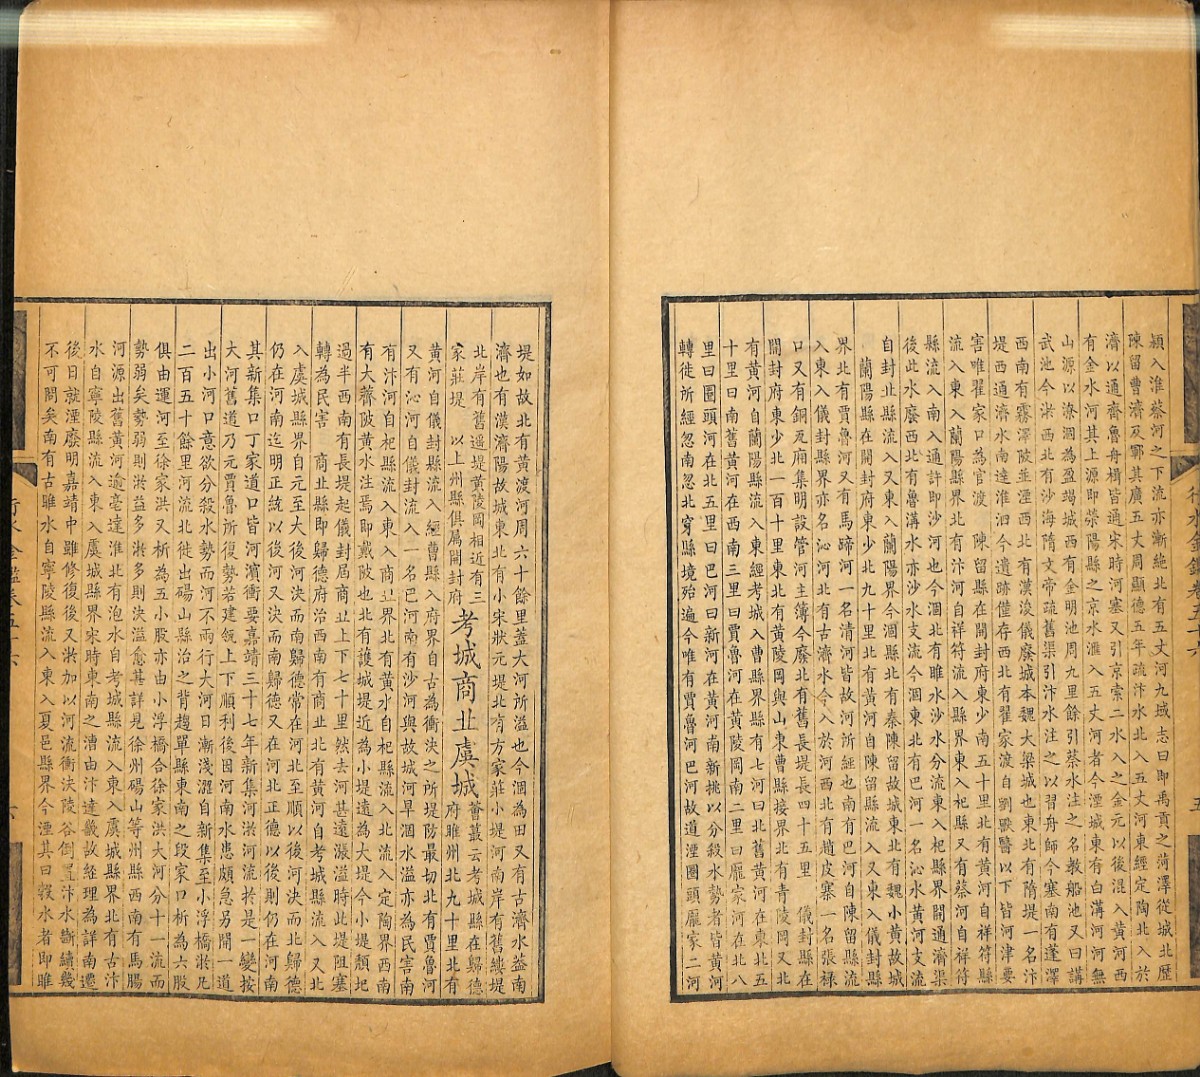 潁入淮蔡河之下流亦漸絶北有五丈河九域志曰即禹貢之菏澤從城北歷
陳留曹濟及鄆其廣五丈周顯德五年疏汴水北入五丈河東經定陶北入於
濟以通齊魯舟楫皆通宋時河塞又引京索二水入之金元以後混入黃河西
有金水河其上源即滎陽縣之京水滙入五丈河者今湮城東有白溝河河無
山源以潦涸為盈竭城西有金明池周九里餘引蔡水注之名教船池又曰講
武池今淤西北有沙海隋文帝疏舊渠引汴水注之以習舟師今塞南有蓬澤
西南有霧澤陂並湮西北有漢浚儀廢城本魏大梁城也東北有隋堤一名汴
堤西通濟水南達淮泗今遺跡僅存西北有翟家渡自劉獸醫以下皆河津要
害唯翟家口為官渡 陳留縣在開封府東少南五十里北有黃河自祥符縣
流入東入蘭陽縣界北有汴河自祥符流入縣界東入杞縣又有蔡河自祥符
縣流入南入通許即沙河也今涸北有睢水沙水分流東入杞縣界開通濟渠
後此水廢西北有魯溝水亦沙水支流今涸東北有巴河一名沁水黃河支流
自封丘縣流入又東入蘭陽界今涸縣北有秦陳留故城東北有魏小黃故城
蘭陽縣在開封府東少北九十里北有黃河自陳留縣流入又東入儀封縣
界北有賈魯河又有馬蹄河一名清河皆故河所經也南有巴河自陳留縣流
入東入儀封縣界亦名沁河北有古濟水今入於河西北有趙皮寨一名張祿
口又有銅瓦廂集明設管河主簿今廢北有舊長堤長四十五里 儀封縣在
開封府東少北一百十里東北有黃陵岡與山東曹縣接界北有青陵岡又北
有黃河自蘭陽縣流入東經考城入曹縣界縣有七河曰北舊黃河在東北五
十里曰南舊黃河在西南三里曰賈魯河在黃陵岡南二里曰龐家河在北八
里曰圈頭河在北五里曰巴河曰新河在黃河南新挑以分殺水勢者皆黃河
轉徙所經忽南忽北穿縣境殆遍今唯有賈魯河巴河故道湮圈頭龐家二河
堤如故北有黃渡河周六十餘里蓋大河所溢也今涸為田又有古濟水葢南
濟也有漢濟陽故城東北有小宋狀元堤北有方家莊小堤河南岸有舊縷堤
北岸有舊遥堤黃陵岡相近有三
家莊堤 以上州縣俱屬開封府
考城商丘虞城
薈蕞云考城縣在歸德
府睢州北九十里北有
黃河自儀封縣流入經曹縣入府界自古為衝決之所堤防最切北有賈魯河
又有沁河自儀封流入一名巴河南有沙河與故城河早涸水溢亦為民害南
有汴河自杞縣流入東入商丘界北有黃水自杞縣流入北流入定陶界西南
有大薺陂黃水注焉即戴陂也北有護城堤近為小堤遠為大堤今小堤頹圮
過半西南有長堤起儀封屆商丘上下七十里然去河甚遠漲溢時此堤阻塞
轉為民害 商丘縣即歸德府治西南有商丘北有黃河自考城縣流入又北
入虞城縣界自元至大後河決而南歸德常在河北至順以後河決而北歸德
仍在河南迄明正統以後河又決而南歸德又在河北正德以後則仍在河南
其新集口丁家道口皆河濱衝要嘉靖三十七年新集河淤河流於是一變按
大河舊道乃元賈魯所復勢若建瓴上下順利後因河南水患頗急另開一道
出小河口意欲分殺水勢而河不兩行大河日漸淺澀自新集至小浮橋淤凡
二百五十餘里河流北徙出碭山縣治之背趨單縣東南之段家口析為六股
俱由運河至徐家洪又析為五小股亦由小浮橋合徐家洪大河分十一流而
勢弱矣勢弱則淤益多淤多則決溢愈甚詳見徐州碭山等州縣西南有馬腸
河源出舊黃河逾亳達淮北有泡水自考城縣流入東入虞城縣界北有古汴
水自寧陵縣流入東入虞城縣界宋時東南之漕由汴達畿故經理為詳南遷
後日就湮廢明嘉靖中雖修復後又淤加以河流衝決陵谷倒置汴水斷續幾
不可問矣南有古睢水自寧陵縣流入東入夏邑縣界今湮其曰㲄水者即睢